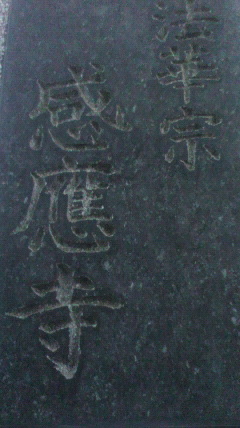 法華宗
感應寺